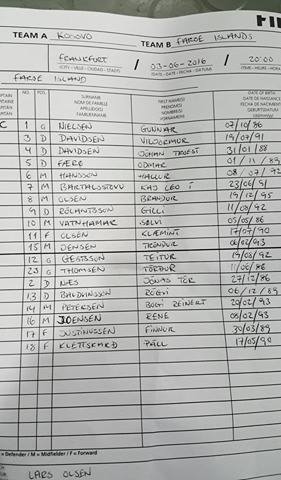 TEAM A KOSOVO TEAM B FAROE ISLANDS
FRANKFURT / 03-06-2016 / 20:00
FAROE ISLAND
NO. POS. SURNAME FIRST NAME(S) DATE OF BIRTH
NOM DE FAMILLE PRÉNOM(S) DATE DE NAISSANCE
APELLIDO(S) NOMBRE(S) FECHA DE NACIMIENTO
C 1 G NIELSEN GUNNAR 07/10/86
3 D DAVIDSEN VILJORMUR 19/07/91
4 D DAVIDSEN JÓHAN TROEST 31/01/88
5 D FÆRØ ODMAR 01/11/89
6 M HANSSON HALLUR 08/07/92
7 M BARTALSSTOVU KAJ LEO Í 23/06/91
8 M OLSEN BRANDUR 19/12/95
9 D RÓLANTSSON GILLI 11/08/92
10 M VATNHAMAR SØLVI 05/05/86
11 F OLSEN KLÆMINT 17/07/90
15 M JENSEN TRÓNDUR 06/02/93
12 G GESTSSON TEITUR 19/08/92
23 G THOMSEN TÓRÐUR 11/06/86
2 D NÆS JÓNAS TÓR 27/12/86
13 D BALDVINSSON RÓGVI 06/12/89
14 M PETERSEN BOGI REINERT 20/02/93
16 M JOENSEN RENE 08/02/93
17 F JUSTINUSSEN FINNUR 30/03/89
18 F KLETTSKARD PÁLL 17/05/90
= Defender / M = Midfielder / F = Forward
LARS OLSEN